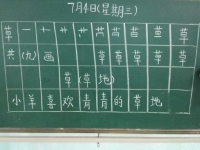 7月4日(星期三)
草 一 十 艹 艹 苎 苩 苩 荁 草
共(九)画 草 草 草 草 草
草(草地)
小羊喜欢青青的草地